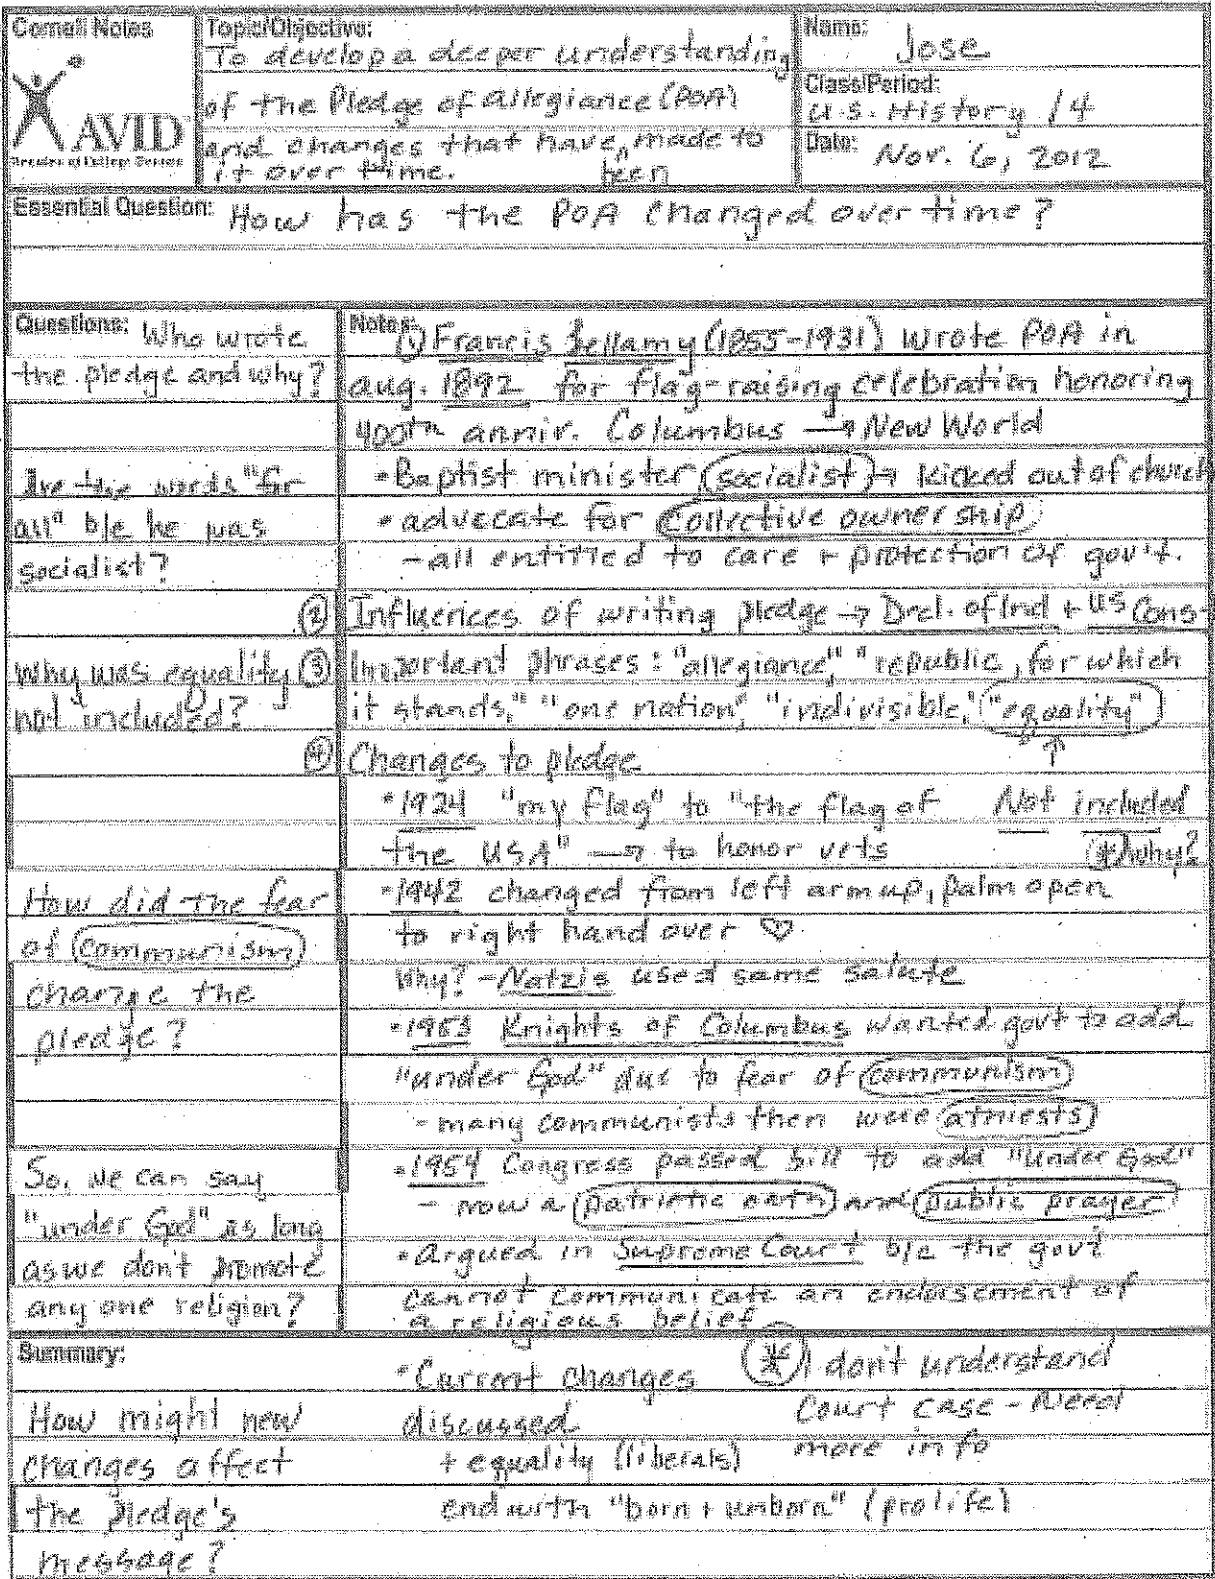 Cornell Notes
AVID
Decades of College Dreams
Topic/Objective:
To develop a deeper understanding
of the Pledge of allegiance (POA)
and changes that have been made to
it over time.
Name: Jose
Class/Period:
U.S. History / 4
Date: Nov. 6, 2012
Essential Question: How has the POA changed over time?
Questions: Who wrote
the pledge and why?
Are the words "for
all" b/c he was
socialist?
Why was equality
not included?
How did the fear
of communism
change the
pledge?
So, we can say
"under God" as long
as we don't promote
any one religion?
Notes:
(1) Francis Bellamy (1855-1931) wrote POA in
aug. 1892 for flag-raising celebration honoring
400th anniv. Columbus → New World
• Baptist minister (socialist) → kicked out of church
• advocate for collective ownership
- all entitled to care + protection of gov't.
(2) Influences of writing pledge → Decl. of Ind + US Cons-
(3) Important phrases: "allegiance," "republic, for which
it stands," "one nation", "indivisible," "equality"
↑
(4) Changes to pledge
• 1924 "my flag" to "the flag of Not included
the USA" → to honor vets * why?
• 1942 changed from left arm up, palm open
to right hand over ♡
Why? - Natzis used same salute
• 1953 Knights of Columbus wanted govt to add
"under God" due to fear of communism
- many communists then were athiests
• 1954 Congress passed bill to add "under God"
- now a patriotic oath and public prayer
• argued in Supreme Court b/c the govt
cannot communicate an endorsement of
a religious belief
Summary:
How might new
changes affect
the pledge's
message?
• Current changes
discussed
+ equality (liberals)
end with "born + unborn" (prolife)
* I don't understand
Court case - Need
more info